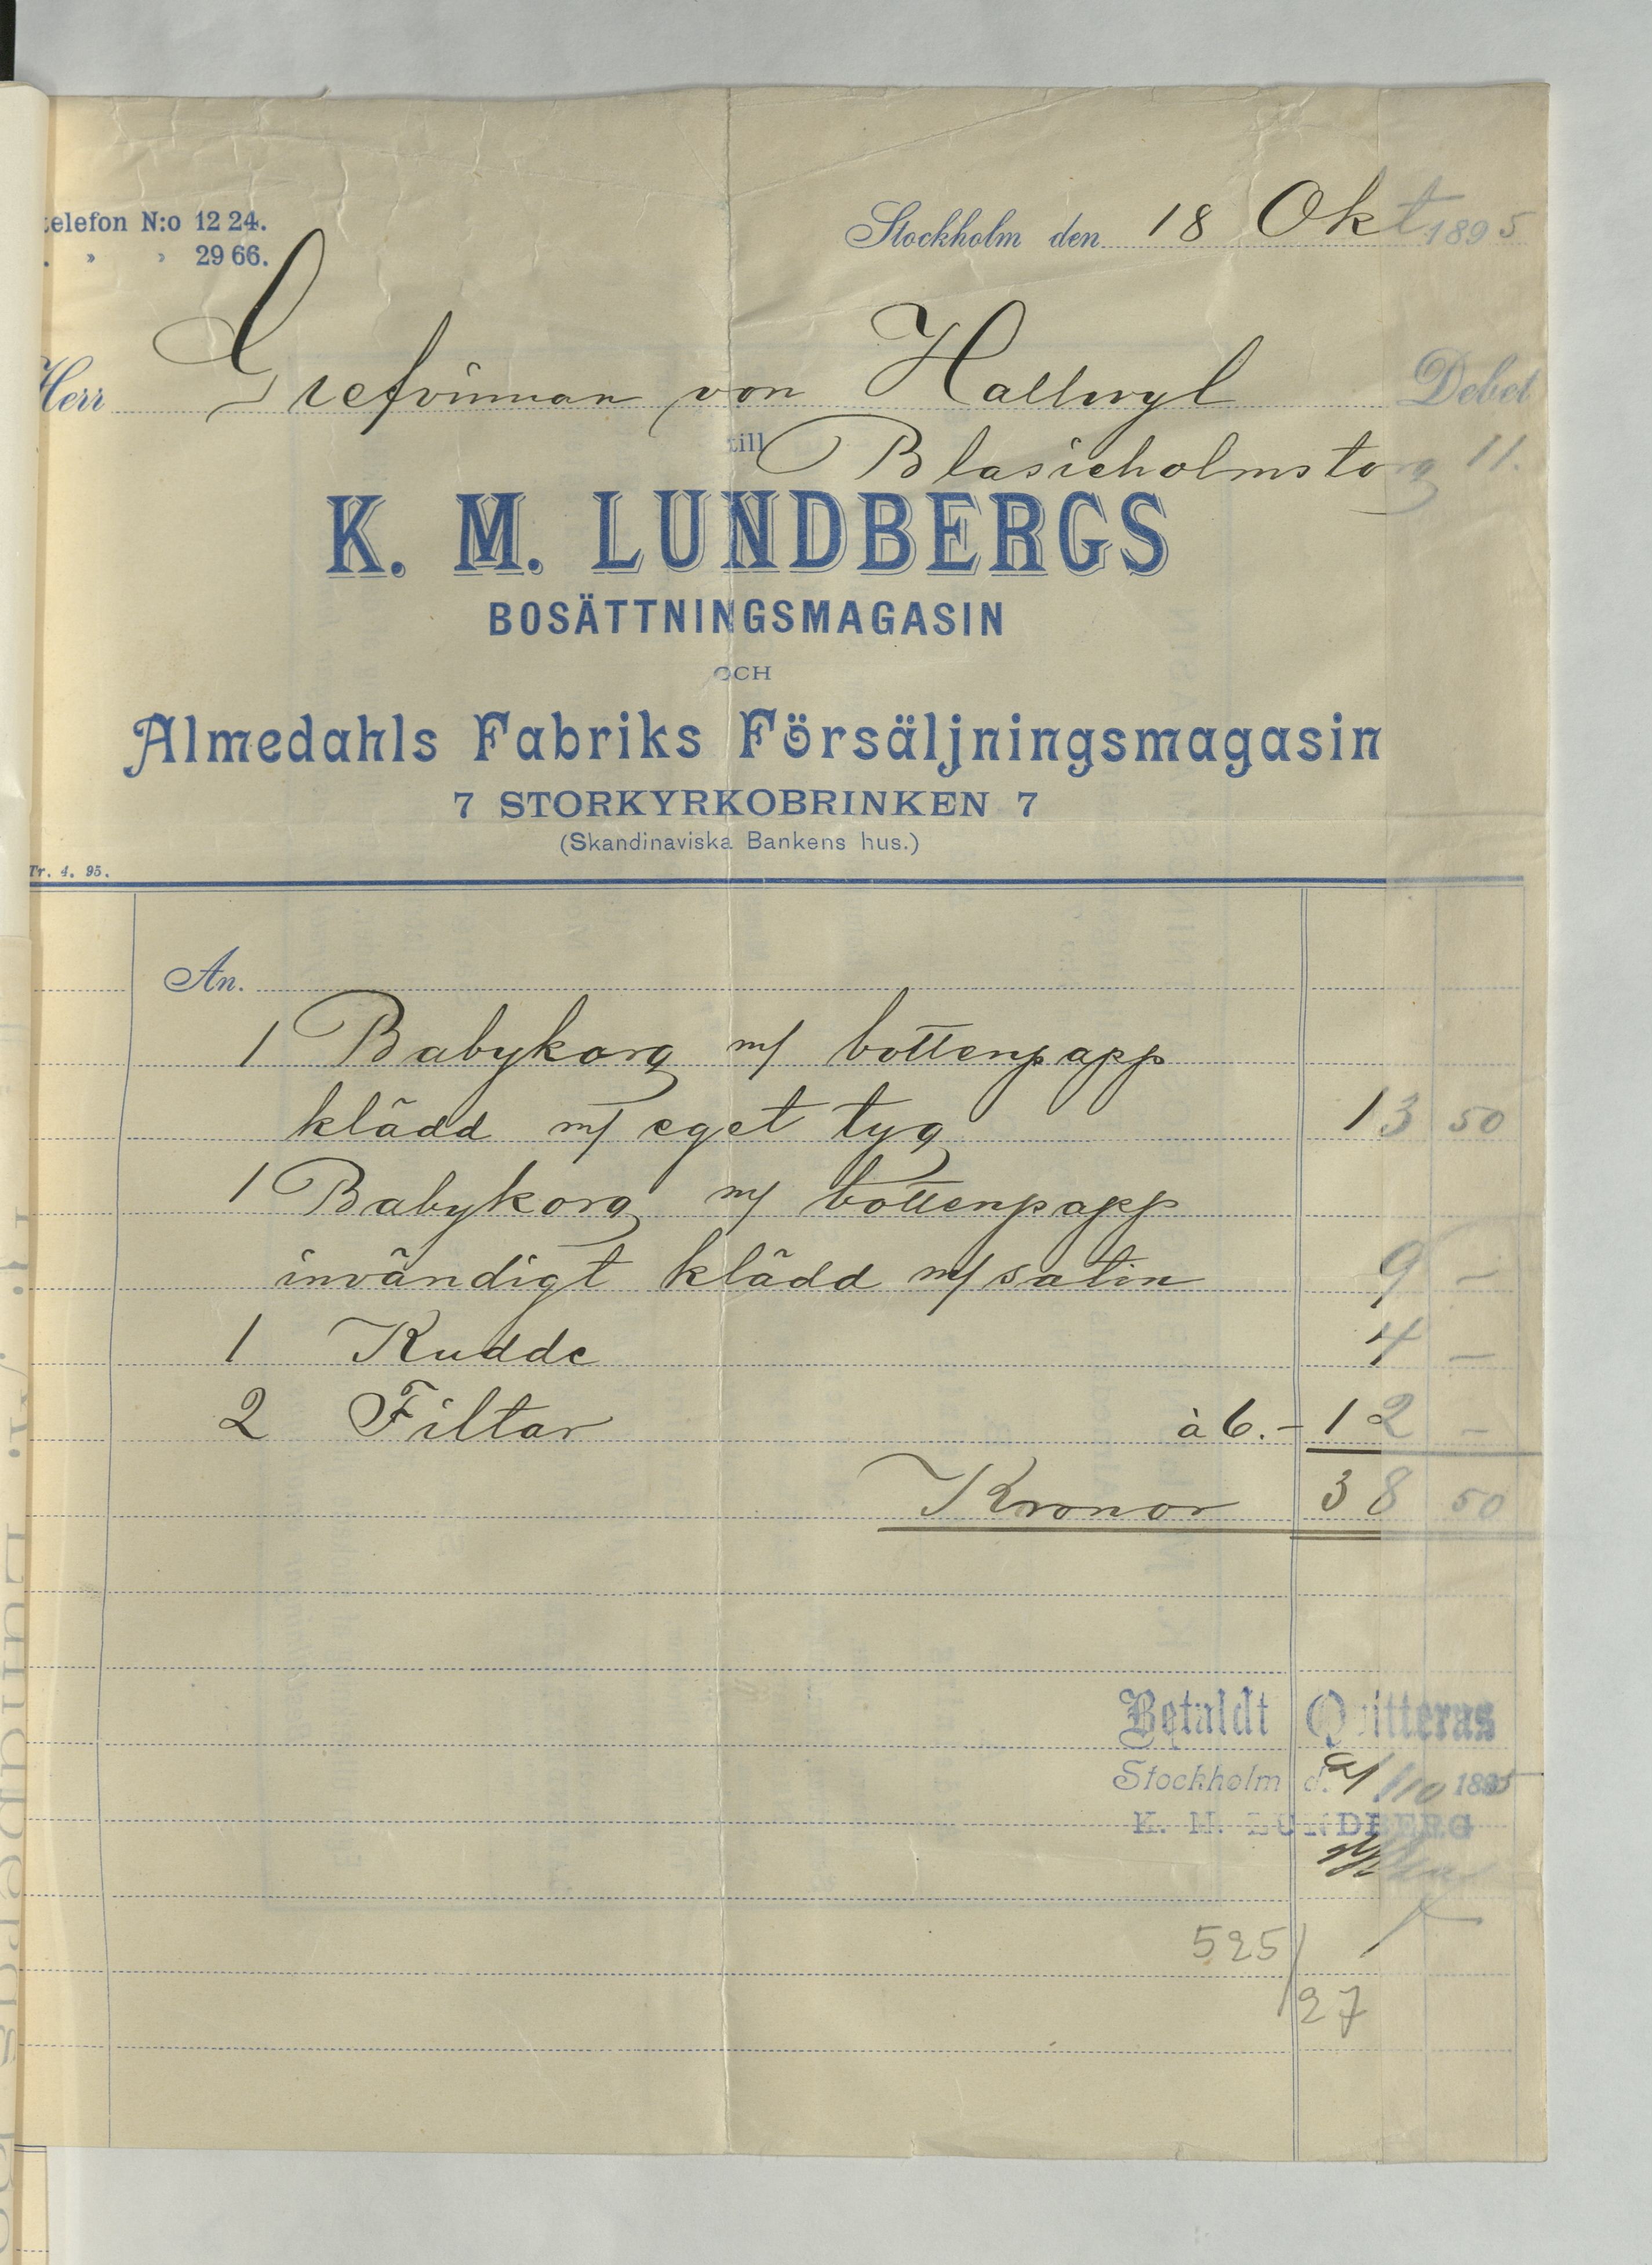 telefon N:o 12 24.
» » 29 66.
Stockholm den 18 Okt 1895
Herr Grefvinnan von Hallwyl Debet
till Blasieholmstorg 11.
K. M. LUNDBERGS
BOSÄTTNINGSMAGASIN
OCH
Almedahls Fabriks Försäljningsmagasin
7 STORKYRKOBRINKEN 7
(Skandinaviska Bankens hus.)
Tr. 4. 95.
An.
1 Babykorg m/ bottenpapp
klädd m/ eget tyg 13 50
1 Babykorg m/ bottenpapp
invändigt klädd m/ satin 9 –
1 Kudde 4 –
2 Filtar à 6.– 12 –
Kronor 38 50
Betaldt Qvitteras
Stockholm d. /10 1895
K. M. LUNDBERG
525/
27